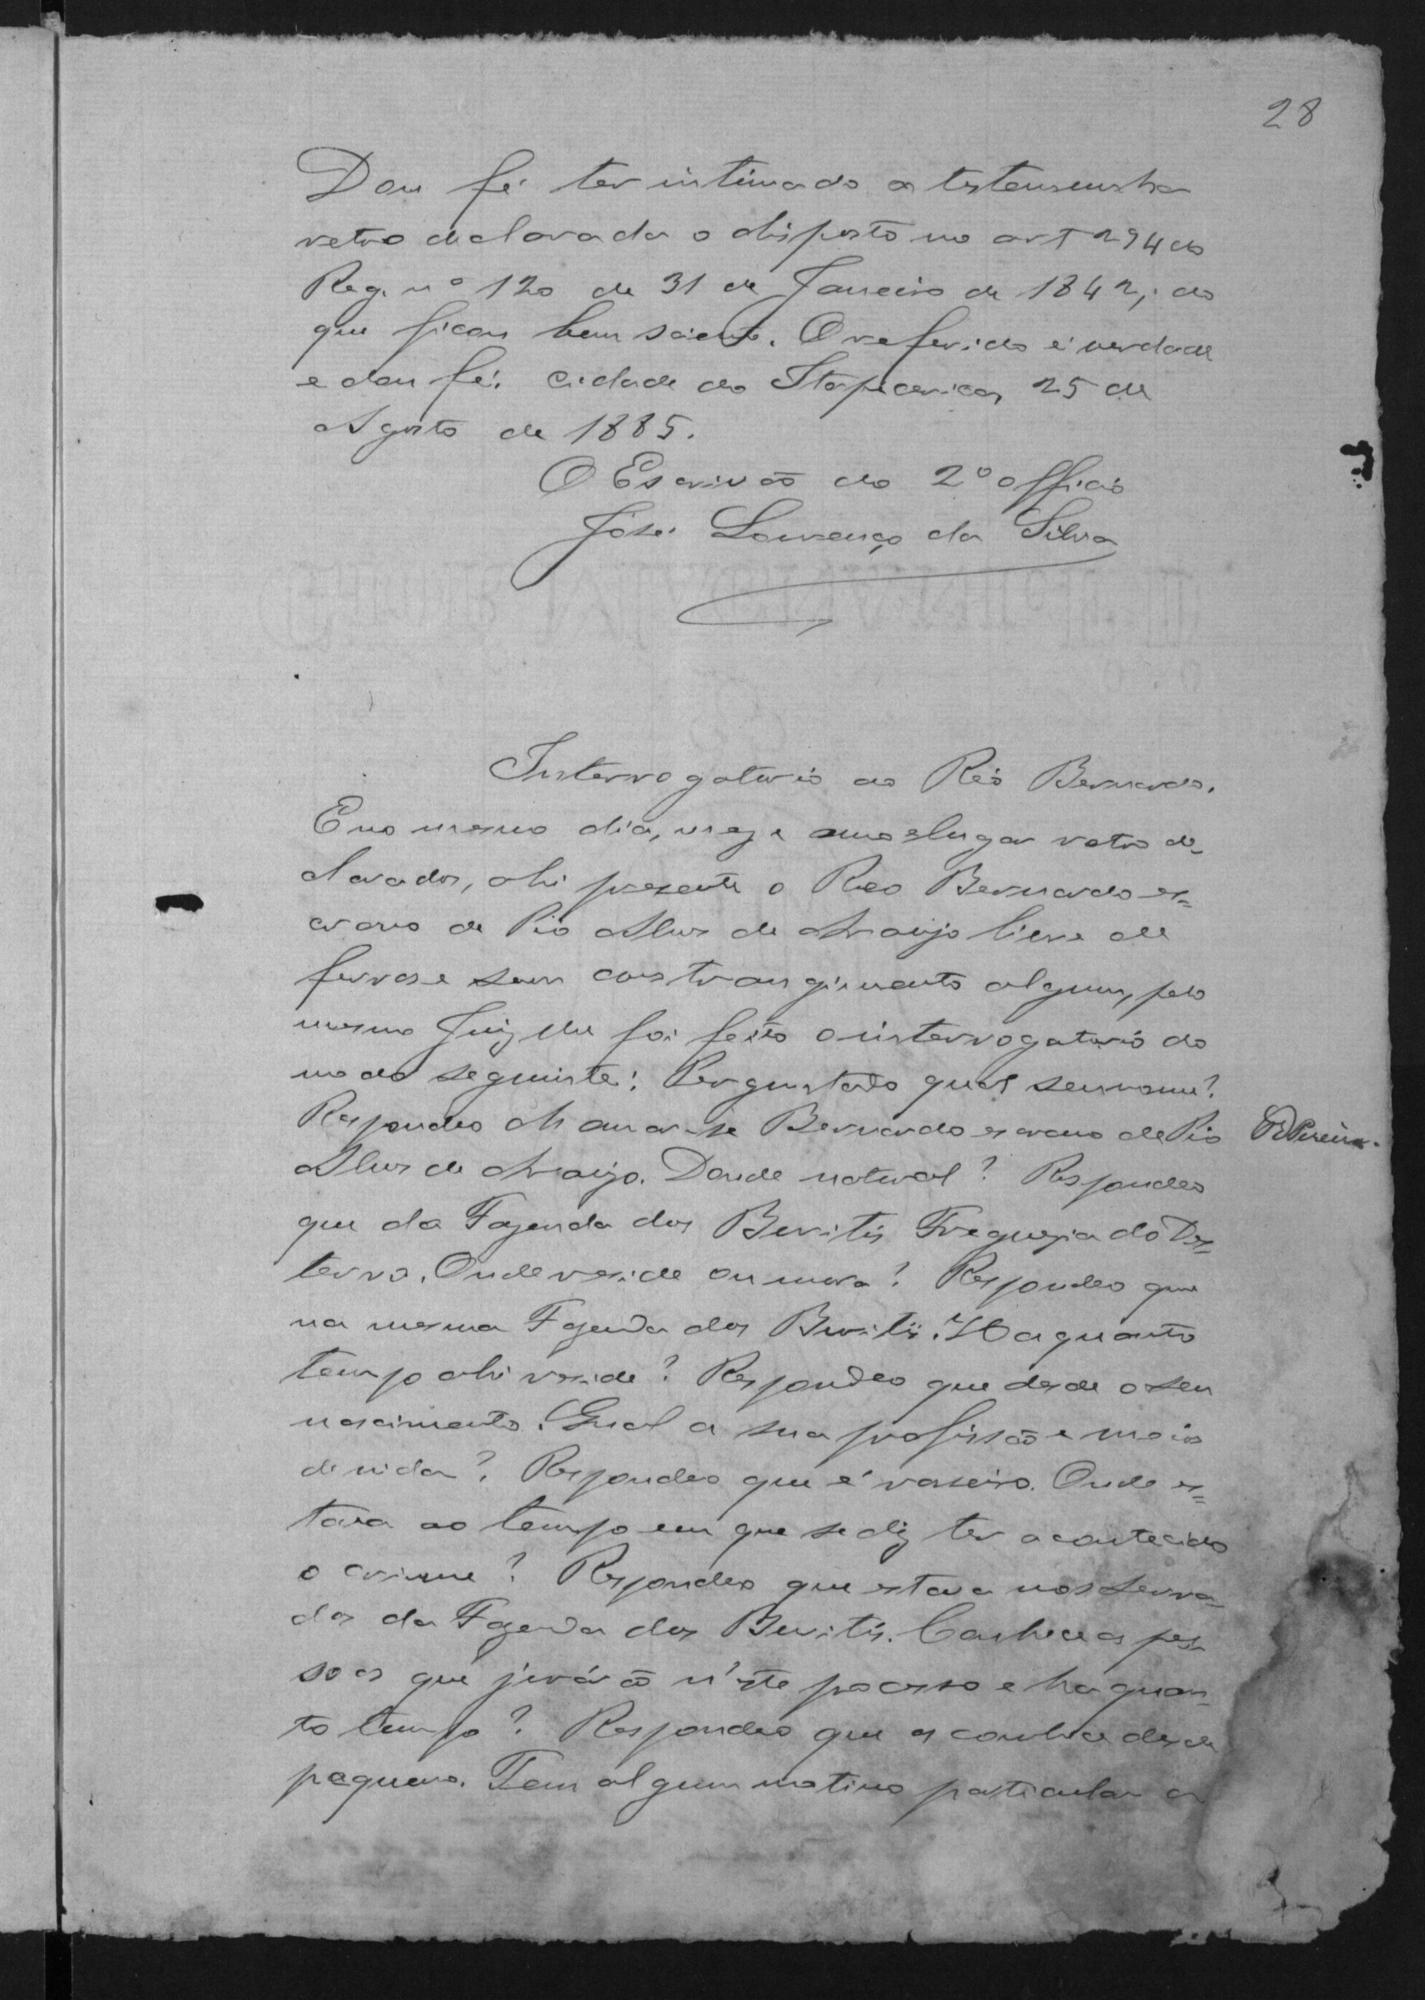 28
Dou fé ter intimado a testemunha
retro declarada o disposto no art 294 do
Reg. nº 120 de 31 de Janeiro de 1842, do
que ficou bem sciente. O referido é verdade
e dou fé. Cidade de Itapecerica, 25 de
Agosto de 1885.
O Escrivão do 2º officio
José Lourenço da Silva
Interrogatorio ao Réo Bernardo.
E no mesmo dia, mez e anno e lugar retro de-
clarados, ahi presente o Reo Bernardo es=
cravo de Pio Alves de Araujo livre de
ferros e sem constrangimento algum, pelo
mesmo Juiz lhe foi feito o interrogatorio do
modo seguinte: Perguntado qual seu nome?
Respondeo chamar-se Bernardo escravo de Pio
Pereira.
Alves de Araujo. Donde natural? Respondeo
que da Fazenda dos Buritis Freguezia do Des=
terro. Onde reside ou mora? Respondeo que
na mesma Fazenda dos Buritis. Ha quanto
tempo ahi reside? Respondeo que desde o seu
nascimento. Qual a sua profissão e meios
de vida? Respondeo que é vaqueiro. Onde es=
tava ao tempo em que se diz ter acontecido
o crime? Respondeo que estava nos serra-
dos da Fazenda dos Buritis. Conhece as pes-
soas que jurárão n'este processo e ha quan-
to tempo? Respondeo que as conhece desde
pequeno. Tem algum motivo particular a